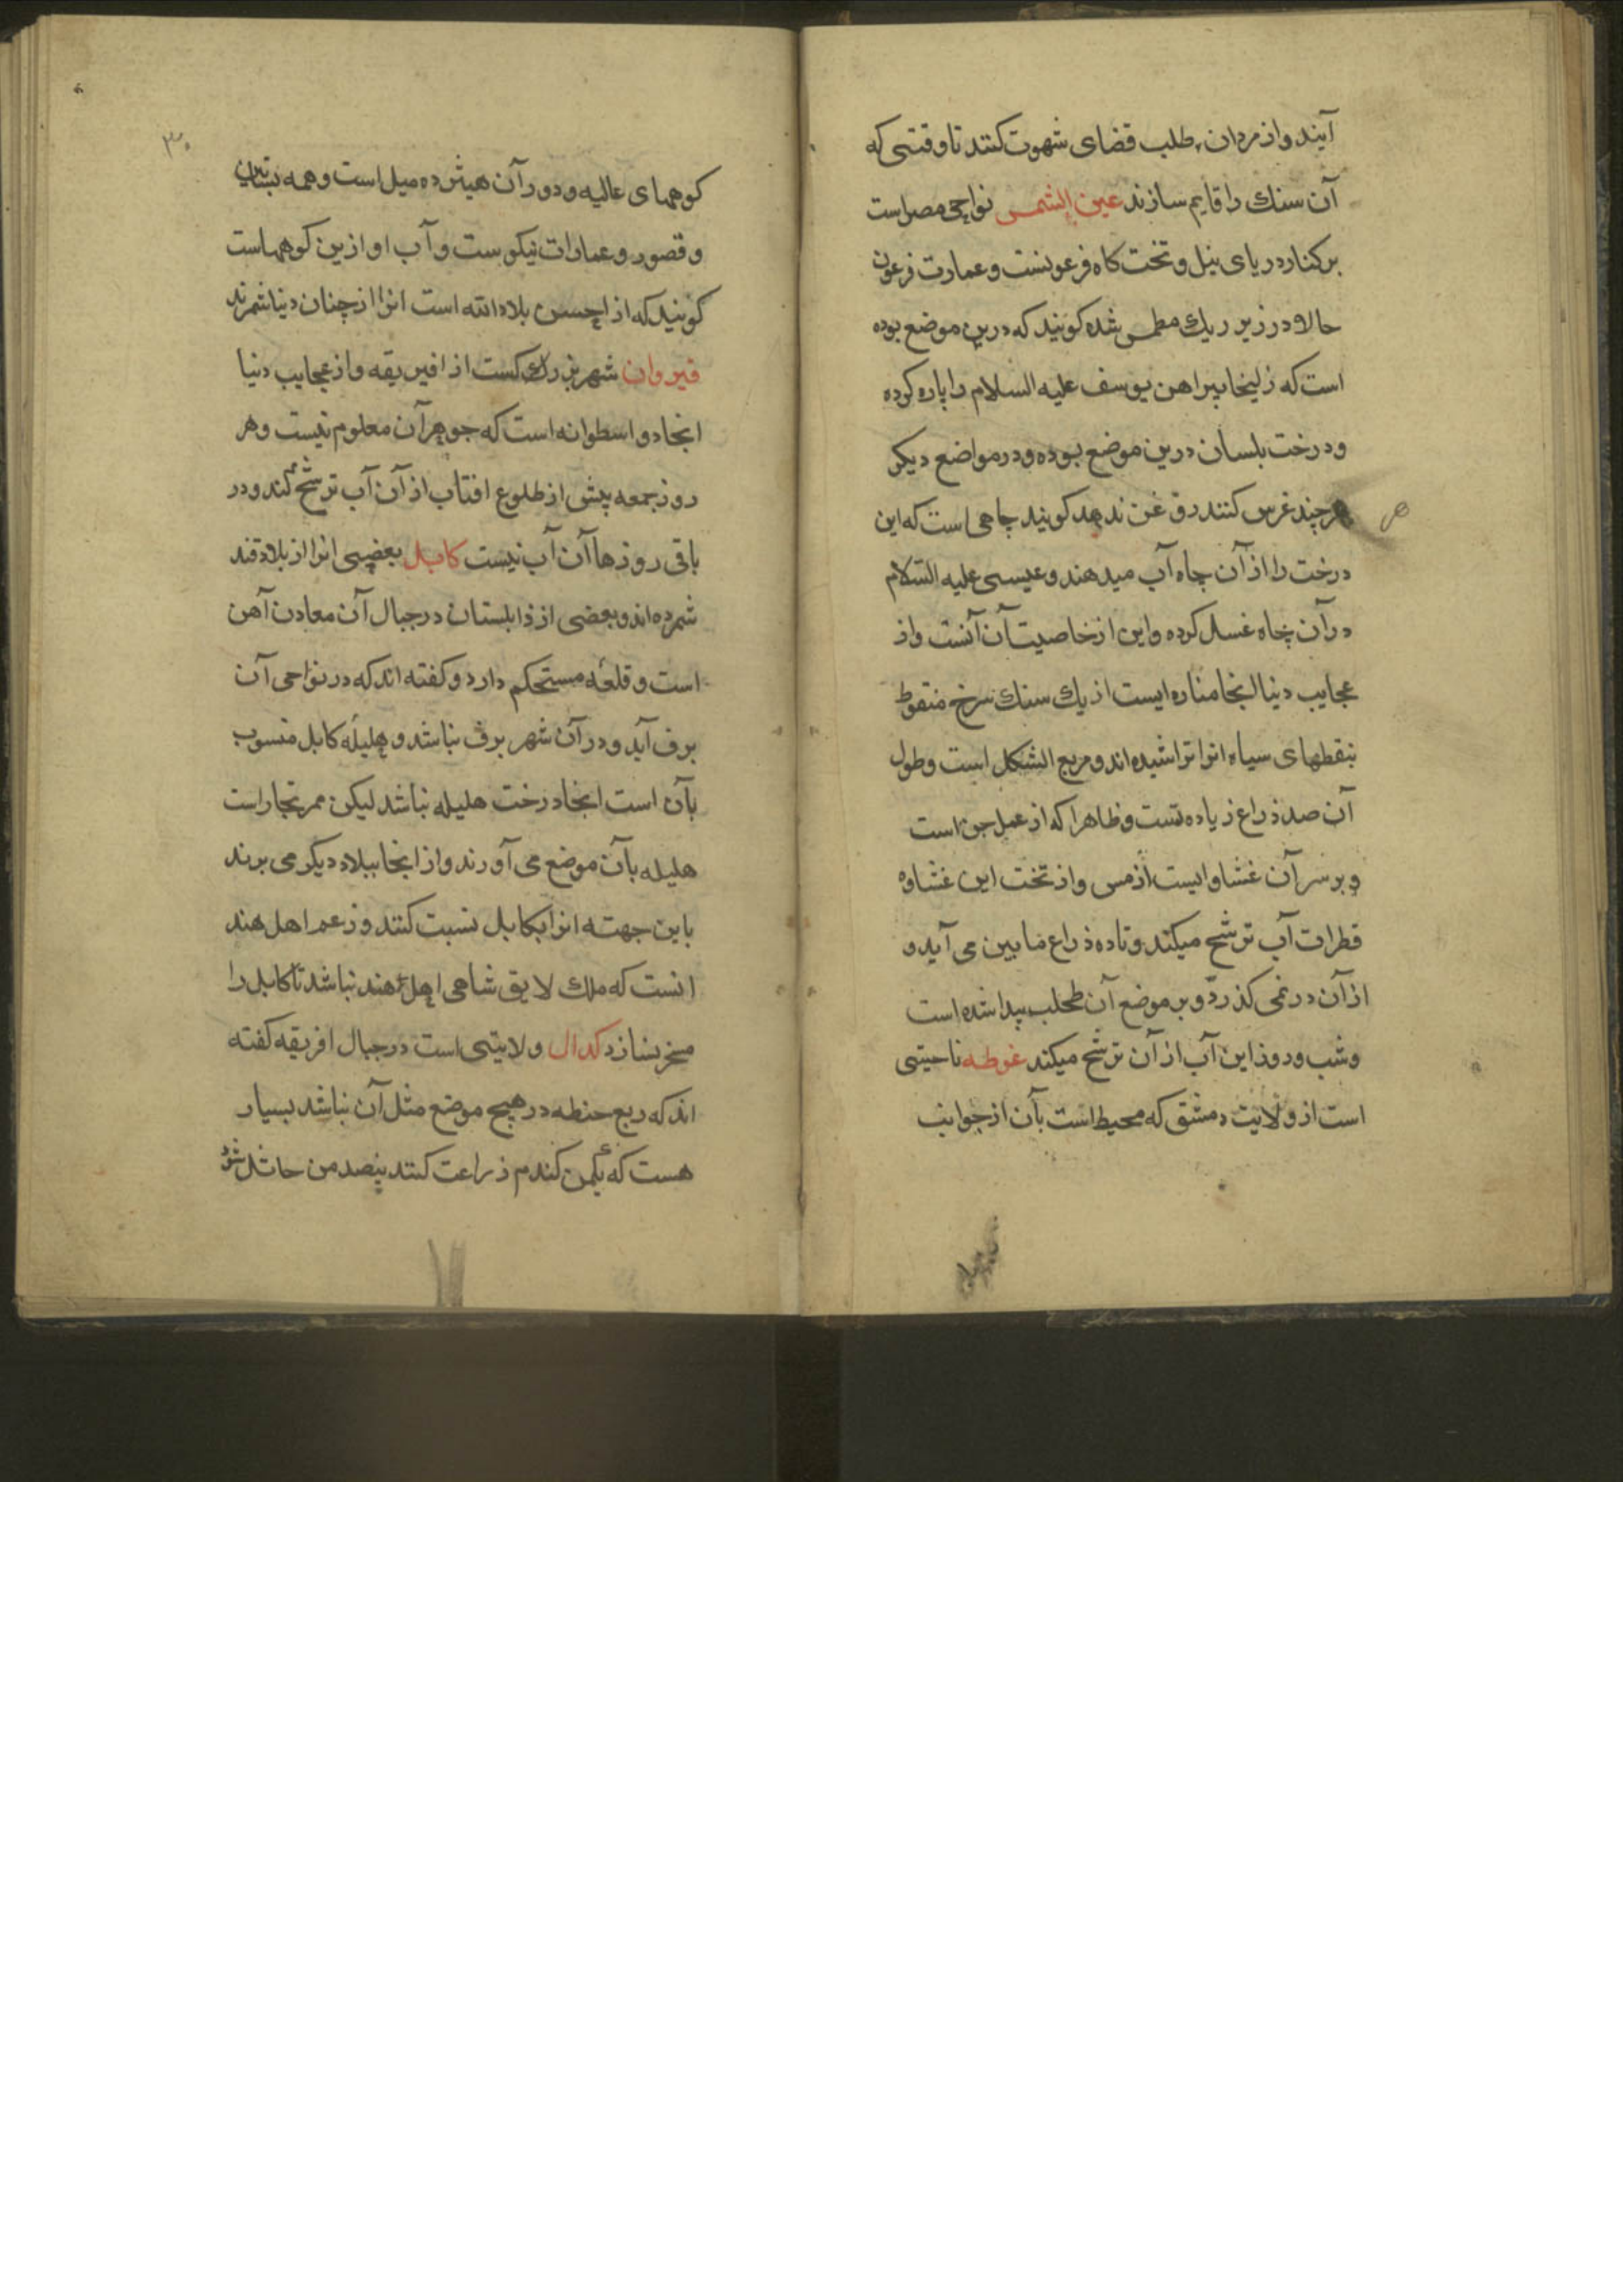 آیند و از مردان طلب قضای شهوت کنند تا وقتی که
آن سنک را قایم سازند عین الشمس نواحی مصر است
بر کنار دریای نیل و تخت کاه فرعونست و عمارت فرعون
حالا در زیر ریک مطمس شده کویند که درین موضع بوده
است که زلیخا پیراهن یوسف علیه السلام را پاره کرده
و درخت بلسان درین موضع بوده و در مواضع دیکر
هر چند غرس کنند روغن ندهد کویند چاهی است که این
درخت را از آن چاه آب میدهند و عیسی علیه السلام
در آن چاه غسل کرده و این از خاصیت آن آنست و از
عجایب دنیا انجا مناره ایست از یک سنک سرخ منقوط
بنقطهای سیاه انرا تراشیده اند و مربع الشکل است و طول
آن صد ذراع زیاده تست و ظاهرا که از عمل جن است
و بر سر آن غشاوایست از مس و از تخت این غشاوه
قطرات آب ترشح میکند و تا ده ذراع مابین می آید و
از آن در نمی کذرد و بر موضع آن طحلب پیدا شده است
و شب و روز این آب از آن ترشح میکند غوطه ناحیتی
است از ولایت دمشق که محیط است بآن از جوانب
۳۰
کوههای عالیه و دور آن هیثر ده میل است و همه بساتین
و قصور و عمارات نیکوست و آب او ازین کوههاست
کویند که از احسن بلاد الله است انرا از چنان دنیا شمرند
قیروان شهر بزرک کست از افیریقه و از عجایب دنیا
انجا دو اسطوانه است که جوهر آن معلوم نیست و هر
روز جمعه پیش از طلوع افتاب از آن آب ترشح کند و در
باقی روزها آن آب نیست کابل بعضی انرا از بلاد قند
شمرده اند و بعضی از ذابلستان در جبال آن معادن آهن
است و قلعه مستحکم دارد و کفته اند که در نواحی آن
برف آید و در آن شهر برف نباشد و هلیله کابل منسوب
بآن است انجا درخت هلیله نباشد لیکن ممر تجار است
هلیله بآن موضع می آورند و از انجا ببلاد دیکر می برند
باین جهته انرا بکابل نسبت کنند و زعم اهل هند
انست که ملک لایق شاهی اهل هند نباشد تا کابل را
مسخر نسازد کدال ولایتی است در جبال افریقه کفته
اند که ریع حنطه در هیچ موضع مثل آن نباشد بسیار
هست که یکمن کندم ذراعت کنند پنصد من حاثل شود